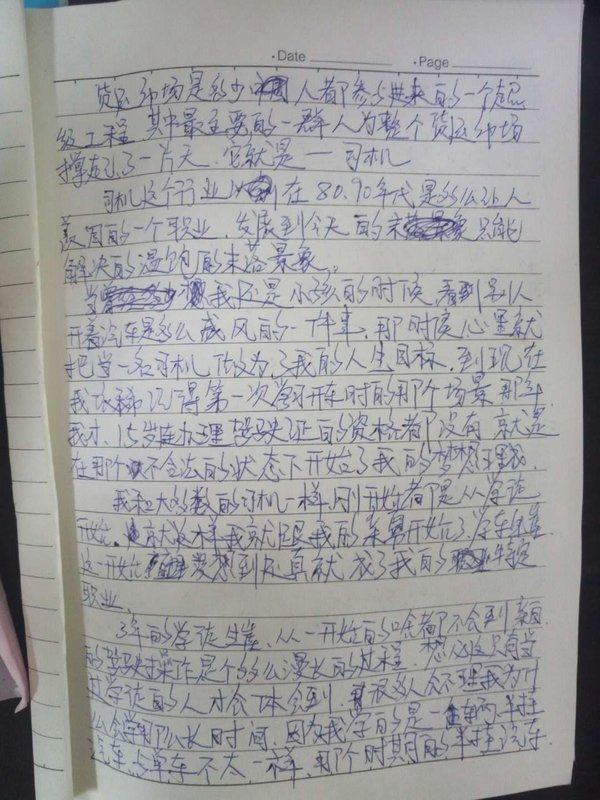 ·Date
·Page
货运市场是多少 人都参与进来的一个超
级工程 其中最主要的一群人为整个货运市场
撑起了一片天.它就是一司机
司机这个行业 在80.90年代是多么让人
羡慕的一个职业.发展到今天的 只能
解决的温饱的末落景象。
我还是小孩的时候,看到别人
开着汽车是多么威风的一件事,那时候心里就
把当一名司机做为了我的人生目标,到现在
我依稀记得第一次学习开车时的那个场景那年
我才15岁连办理驾驶证的资格都没有 就是
在那个不合法的状态下开始了我的梦想
我和大多数的司机一样,刚开始都是从学徒
开始.就这样我就跟我的 开始了学车生涯
这一开始 想到还真就成了我的 终身
职业.
3年的学徒生涯,从一开始的啥都不会到
的驾驶操作是个多么漫长的过程.想必这只有当
过学徒的人才会体会到,很多人会 我为什
么会学那么长时间,因为我学的是 半挂
汽车.与单车不太一样,那个时期的半挂汽车.